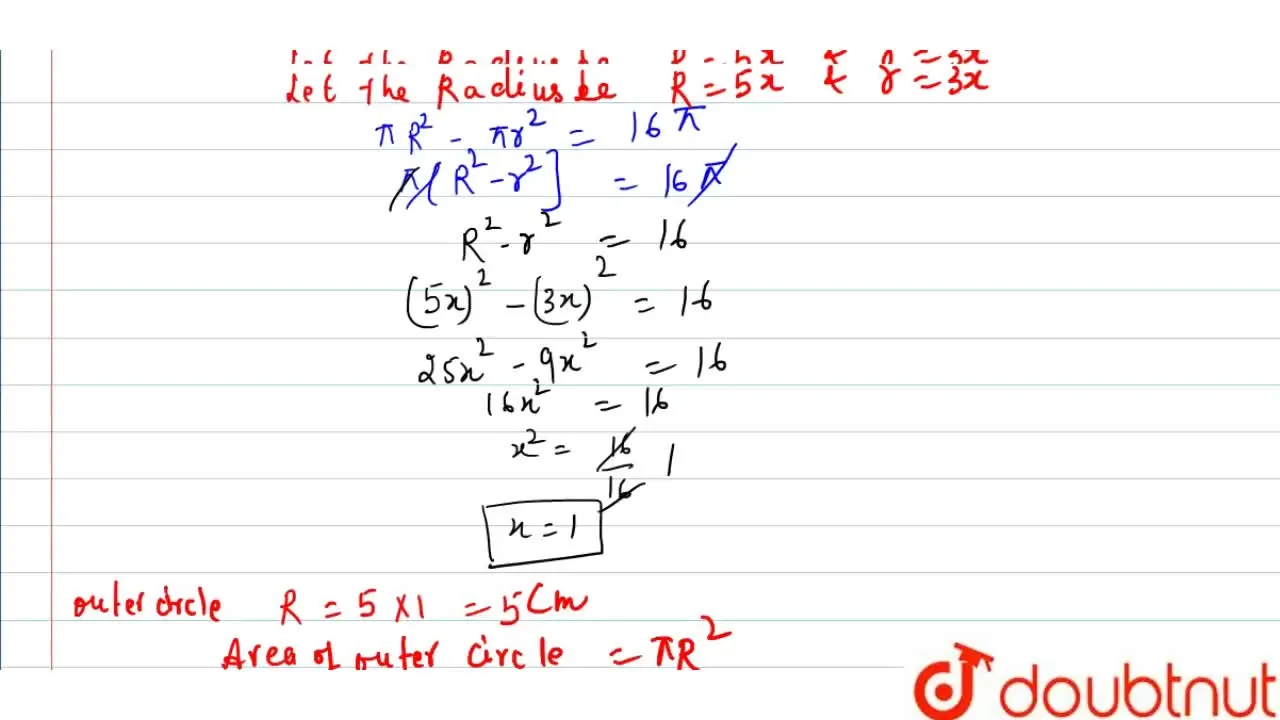 Let the Radius be R = 5x & r = 3x
πR² - πr² = 16π
π[R² - r²] = 16π
R² - r² = 16
(5x)² - (3x)² = 16
25x² - 9x² = 16
16x² = 16
x² = 16/16 1
x = 1
outer circle R = 5 × 1 = 5 Cm
Area of outer circle = πR²
doubtnut